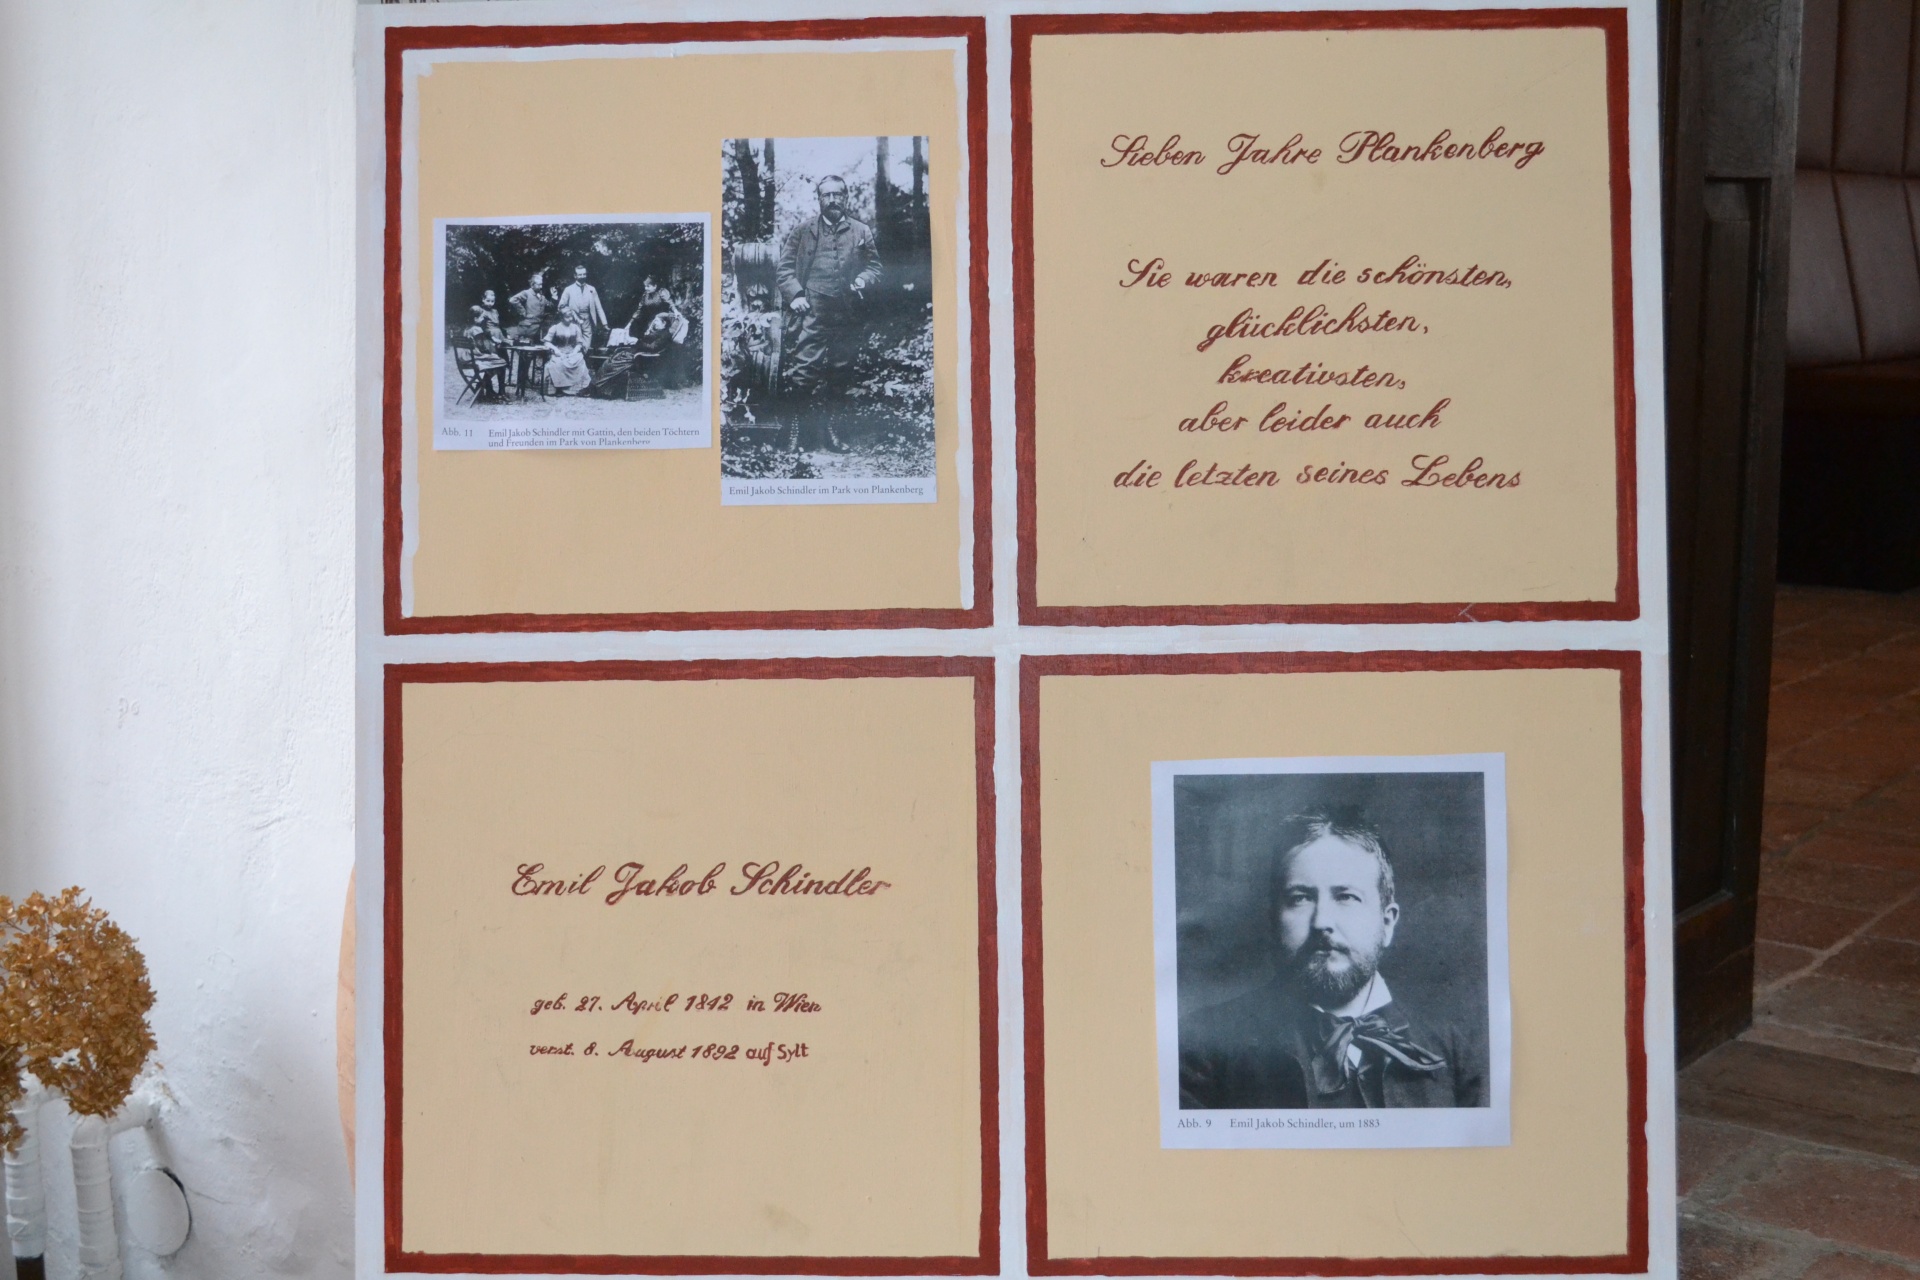 Abb. 11 Emil Jakob Schindler mit Gattin, den beiden Töchtern
und Freunden im Park von Plankenberg
Emil Jakob Schindler im Park von Plankenberg
Sieben Jahre Plankenberg
Sie waren die schönsten,
glücklichsten,
kreativsten,
aber leider auch
die letzten seines Lebens
Emil Jakob Schindler
geb. 27. April 1842 in Wien
verst. 8. August 1892 auf Sylt
Abb. 9 Emil Jakob Schindler, um 1883